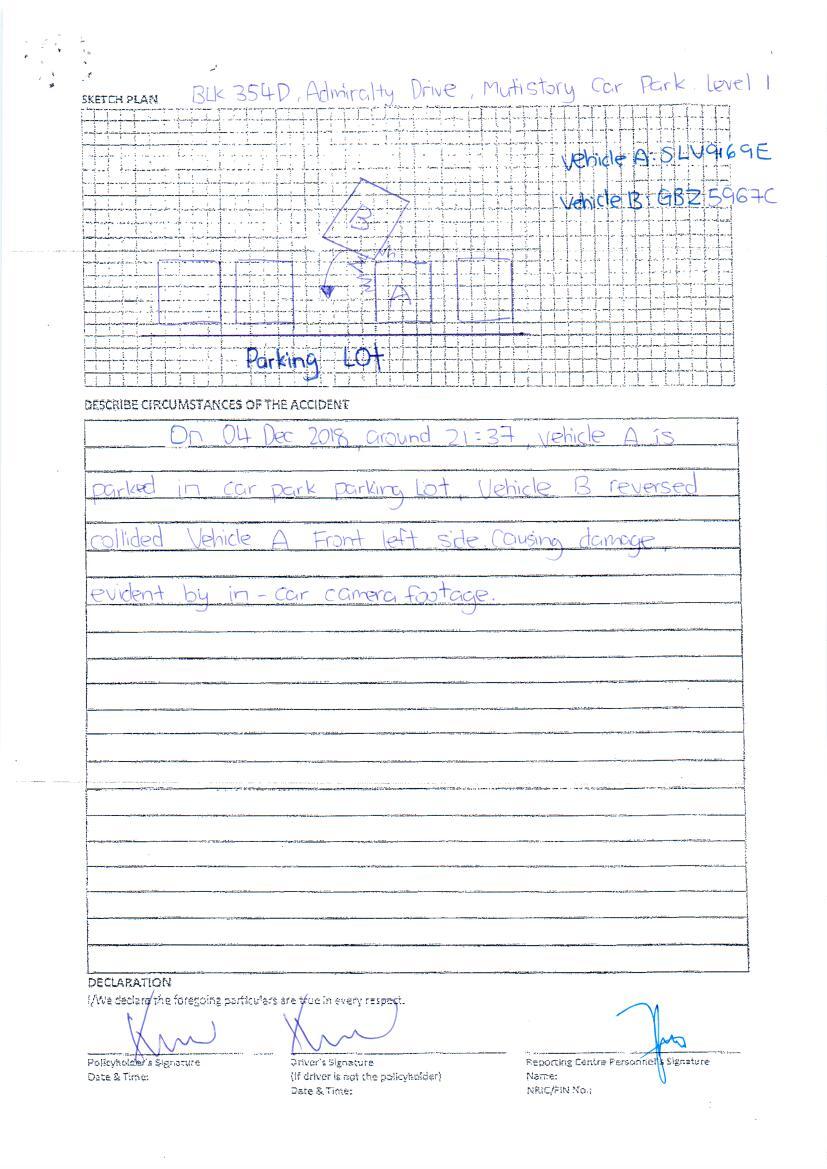 SKETCH PLAN BLK 354D, Admiralty Drive, Mutistory Car Park. Level 1
Vehicle A: SLV9169E
Vehicle B: GBZ5967C
B
A
Parking LOt
DESCRIBE CIRCUMSTANCES OF THE ACCIDENT
On 04 Dec 2018, around 21:37, vehicle A is
parked in car park parking Lot. Vehicle B reversed
collided Vehicle A Front left side. Causing damage,
evident by in-car camera footage.
DECLARATION
I/We declare the foregoing particulars are true in every respect.
Policyholder's Signature Driver's Signature Reporting Centre Personnel's Signature
Date & Time: (If driver is not the policyholder) Name:
Date & Time: NRIC/FIN No.: